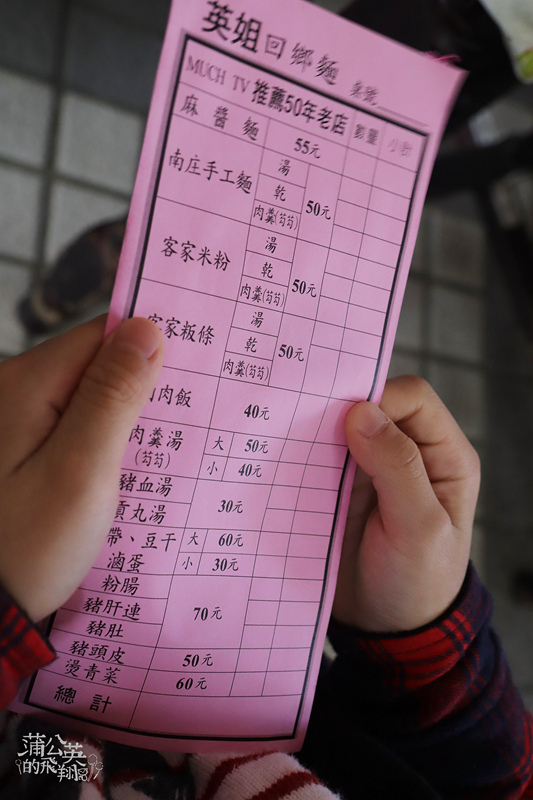 英姐回鄉麵 桌號
MUCH TV 推薦50年老店 數量 小計
麻醬麵 55元
南庄手工麵 湯 乾 肉羹(芶芶) 50元
客家米粉 湯 乾 肉羹(芶芶) 50元
客家粄條 湯 乾 肉羹(芶芶) 50元
肉飯 40元
肉羹湯(芶芶) 大 50元
小 40元
豬血湯 30元
貢丸湯
帶、豆干 大 60元
滷蛋 小 30元
粉腸
豬肝連 70元
豬肚
豬頭皮 50元
燙青菜 60元
總計
蒲公英
的飛翔